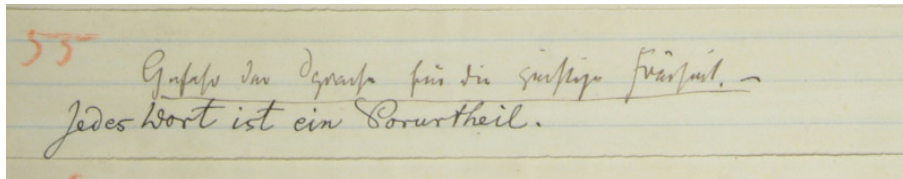 55
Gefahr der Sprache für die geistige Freiheit. —
Jedes Wort ist ein Vorurtheil.